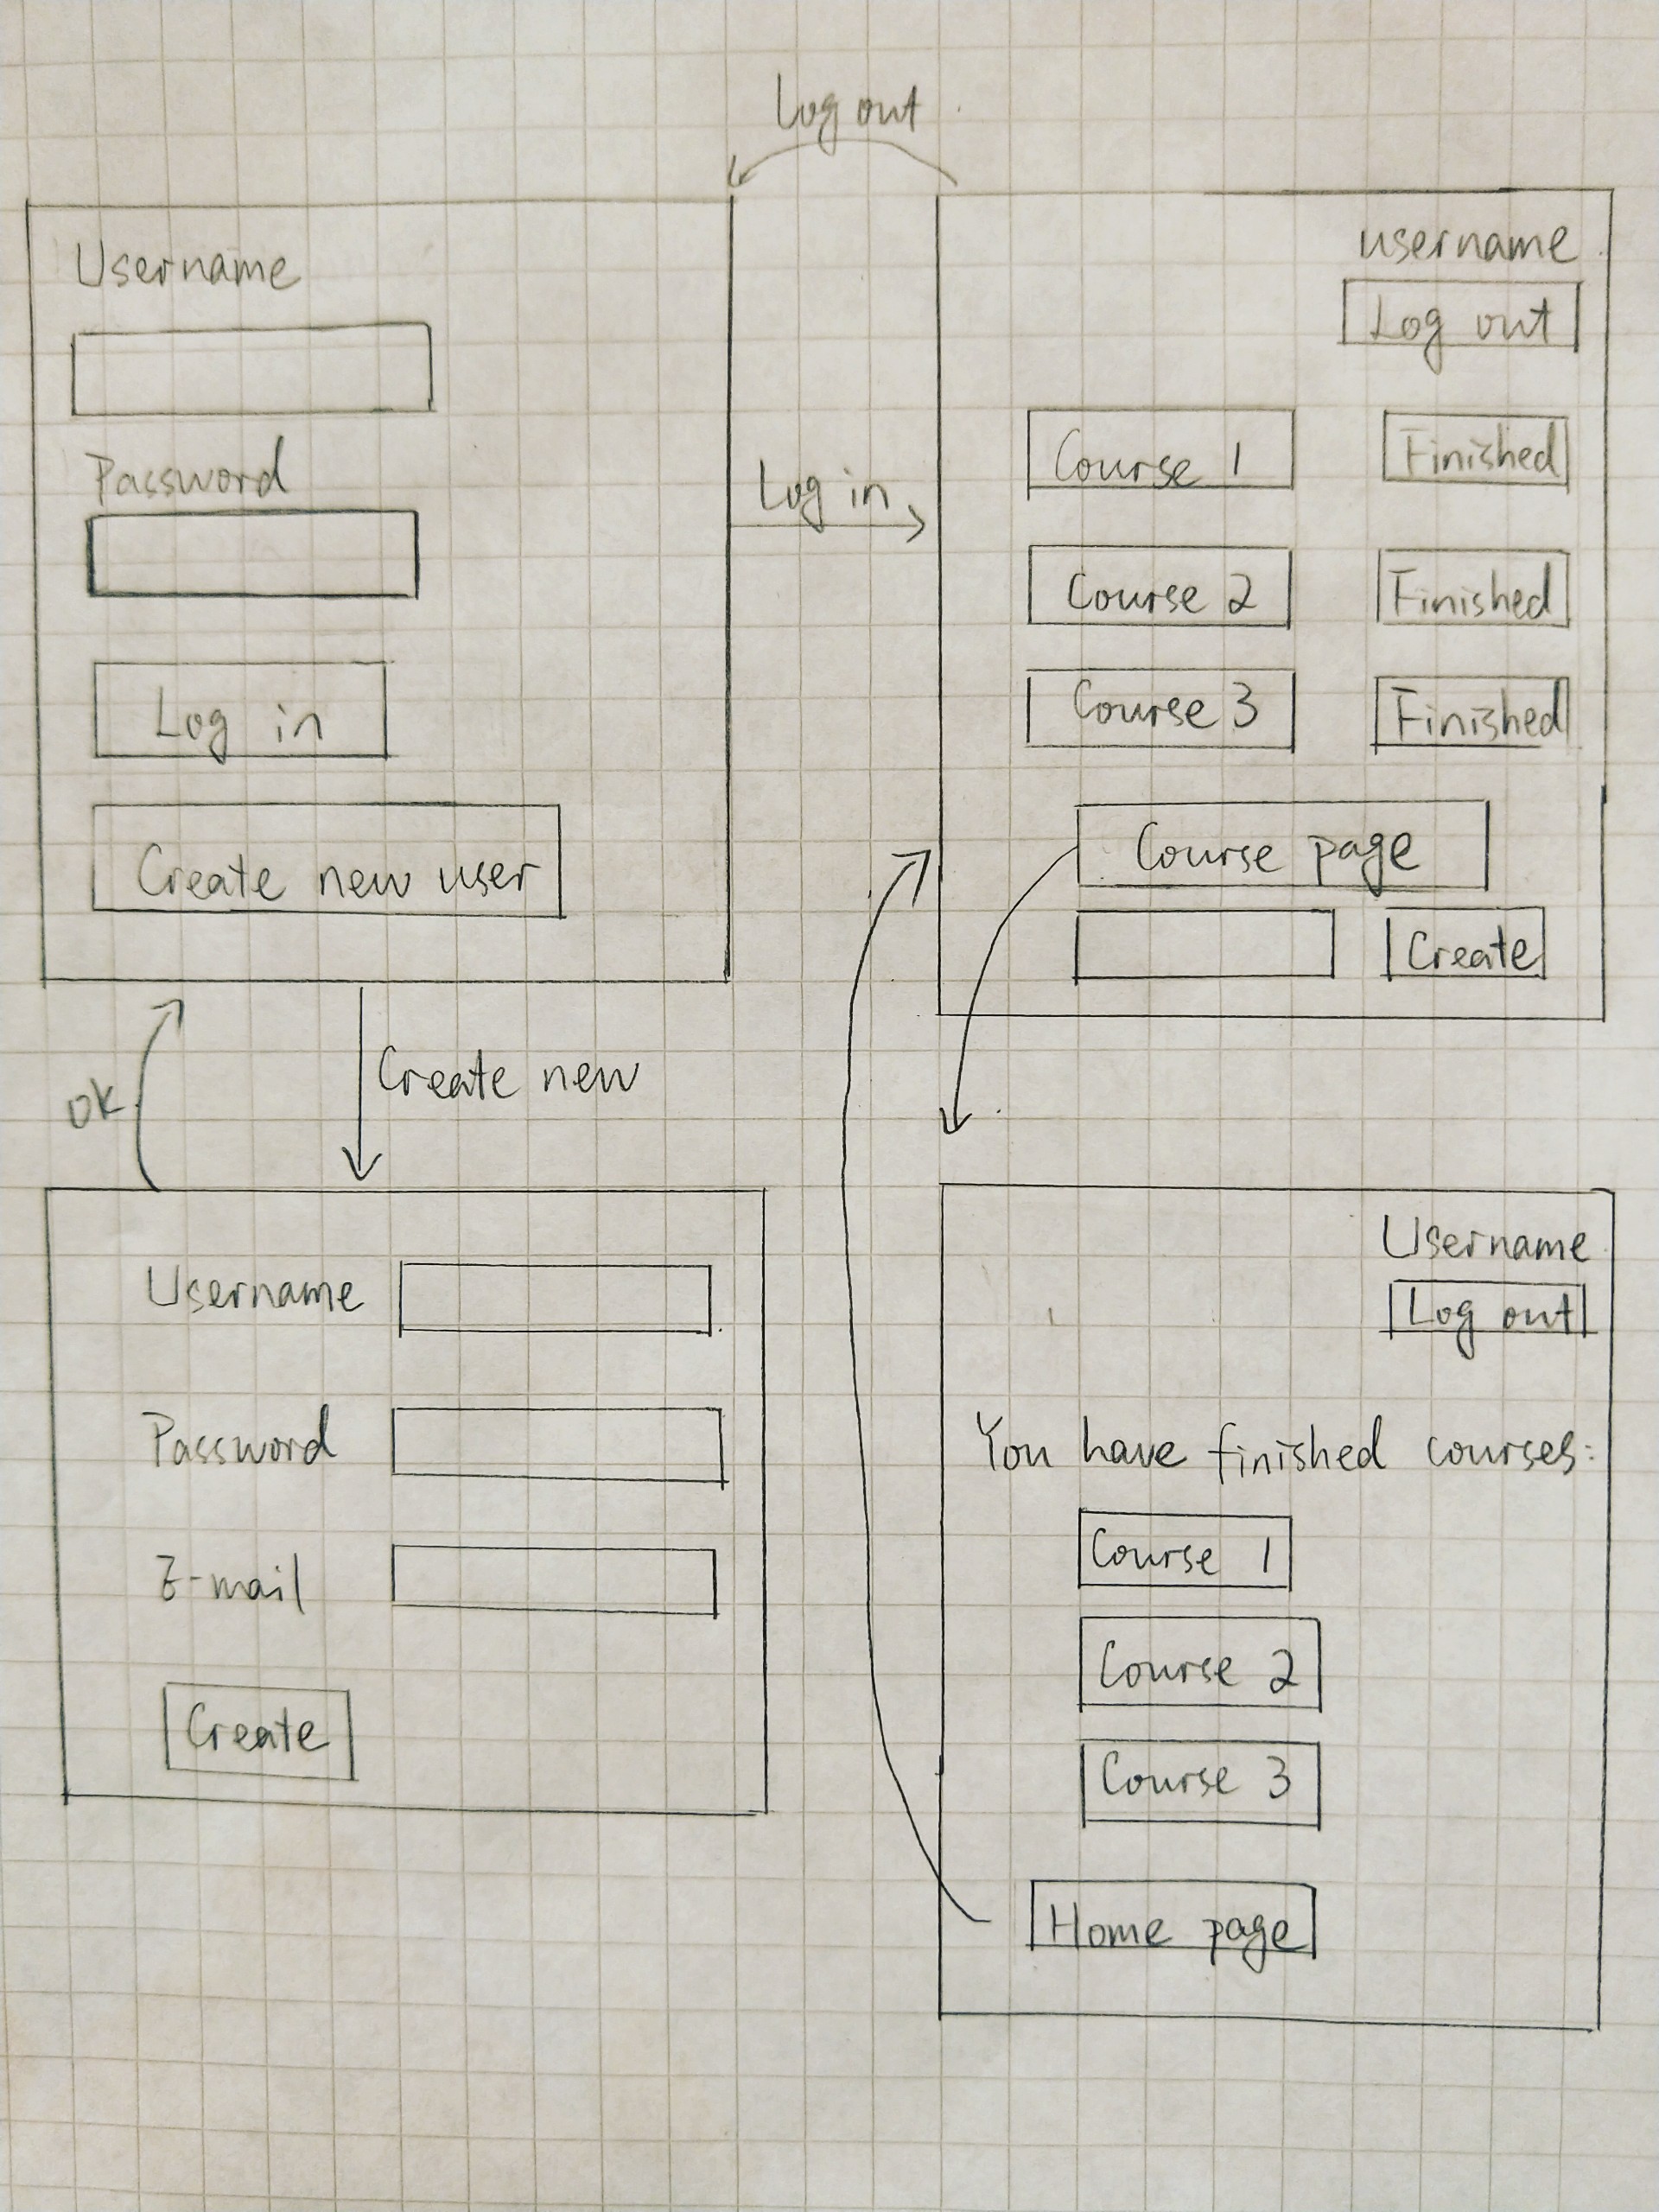 Log out
Username
Password
Log in
Create new user
Log in
username
Log out
Course 1
Finished
Course 2
Finished
Course 3
Finished
Course page
Create
ok
Create new
Username
Password
E-mail
Create
Username
Log out
You have finished courses:
Course 1
Course 2
Course 3
Home page